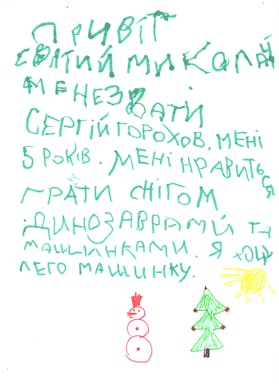 ПРИВІТ
СВЯТИЙ МИКОЛАЙ
МЕНЕ ЗВАТИ
СЕРГІЙ ГОРОХОВ. МЕНІ
5 РОКІВ. МЕНІ НРАВИТЬСЯ
ГРАТИ СНІГОМ
ДИНОЗАВРАМИ ТА
МАШИНКАМИ. Я ХОЧУ
ЛЕГО МАШИНКУ.